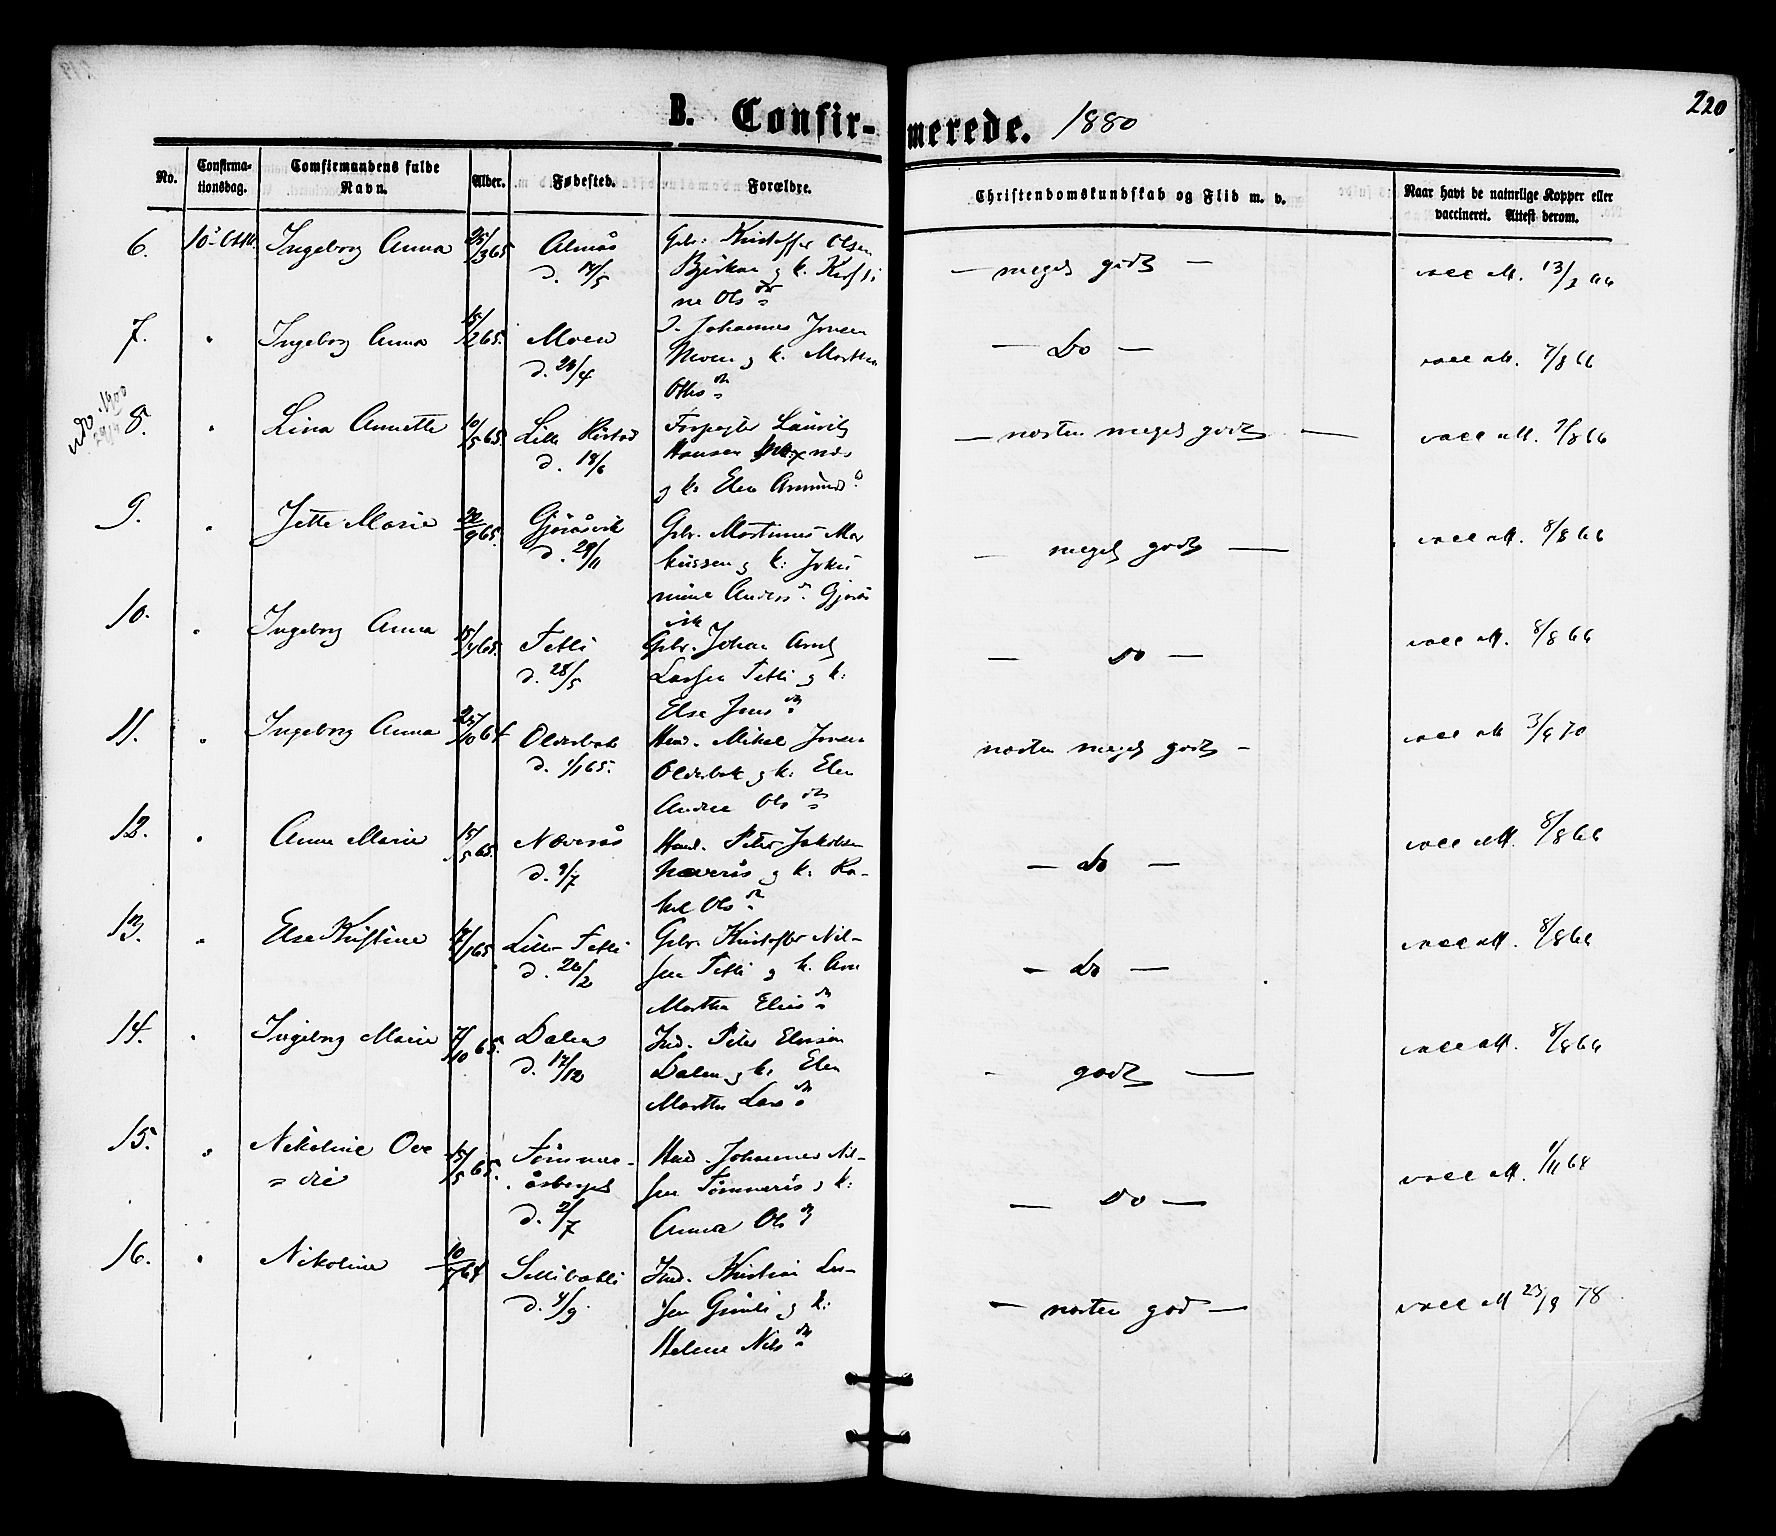 220
B. Confir-
merede. 1880
No.
Confirma-
tionsdag.
Comfirmandens fulde
Navn.
Alder.
Fødested.
Forældre.
Christendomskundskab og Flid m. v.
Naar havt de naturlige Kopper eller
vaccineret. Attest derom.
6. Ingeborg Anna 25/3 65 Almås
d. 14/5
Gbr. Kristoffer Olsen
og k. Kirsti
ne Ols
— meget godt —
vacc
7. " Ingeborg Anna 15/2 65. Moen
d. 24/4
Johannes Jonsen
Moen og k. Marthe
— Do —
vacc att. 7/8 66
8. " Lina Annette 10/5 65 Lille
d. 18/6
Laurits
Hansen
og k. Elen
— næsten meget godt —
vacc att. 7/8 66
9. " Jette Marie 20/9 65. Gjøråsvik
d. 29/11
Gbr. Martinus Mar
kussen og k. Joku
mine Anders Gjørås
vik
— meget godt —
vacc att. 8/8 66
10. " Ingeborg Anna Tetli
d. 28/5
Gbr. Johan Arnt
Larsen Tetli og k:
Else Jens
— Do —
vacc att. 8/8 66
11. " Ingeborg Anna 25/10 64 Olderbak
d. 1/1 65.
Hmd. Mikal Jonsen
Olderbak og k. Elen
Andrea Ols
næsten meget godt —
vacc att 3/9 70
12. " Anne Marie 15/5 65. Næverås
d. 9/7
Hmd. Peter Jakobsen
Næverås og k. Ra-
kel Ols
— Do —
vacc att. 8/8 66
13. " Else Kristine Lille Tetli
d. 26/2
Gbr. Kristoffer Nil-
sen Tetli og k. Ane
Martha Elias
— Do —
vacc att. 8/8 66
14. " Ingeborg Marie 7/10 65. Dalen
d. 17/12
Ind. Peter
Dalen og k. Elen
Martha Lars
— godt —
vacc att. 8/8 66
15. " Nikoline Ove
= die 15/5 65. Tømmer-
åsberget
d. 2/7
Hmd. Johannes Nil-
sen Tømmerås og k:
Anna Ols
— Do —
vacc att. 1/11 68
16. " Nikoline Sellibakli
d. 4/9.
Ind. Kristian
sen og k:
Helene Nils
— næsten god —
vacc att 23/9 78